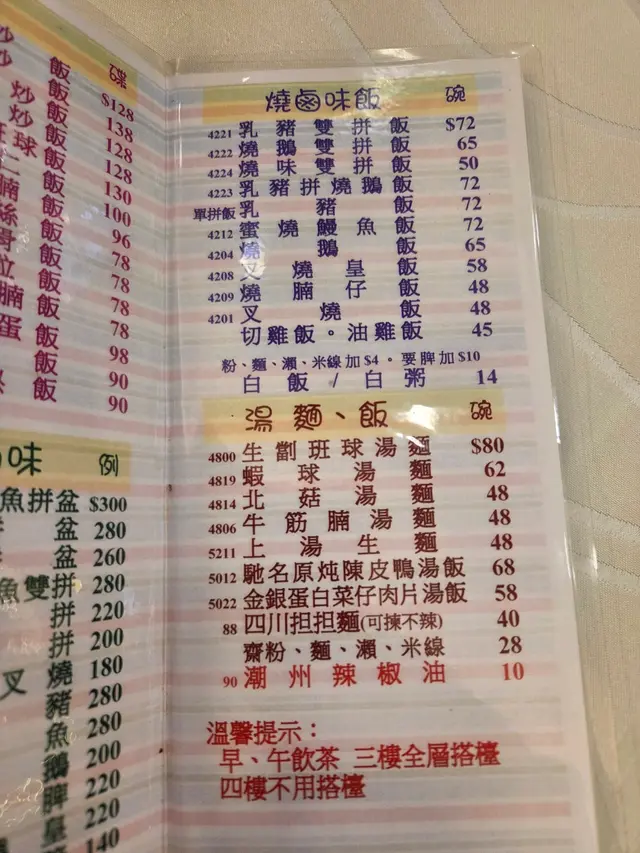 碟
飯 $128
炒 飯 138
炒 球 飯 128
飯 128
腩 飯 130
絲 飯 100
飯 96
飯 78
腩 飯 78
蛋 飯 78
飯 98
飯 90
飯 90
味 例
魚拼盆 $300
盆 280
盆 260
魚雙拼 280
拼 220
拼 200
叉 燒 180
豬 280
魚 280
鵝 200
脾 220
皇 220
140
燒鹵味飯 碗
4221 乳豬雙拼飯 $72
4222 燒鵝雙拼飯 65
4224 燒味雙拼飯 50
4223 乳豬拼燒鵝飯 72
單拼飯 乳豬飯 72
4212 蜜燒鰻魚飯 72
4204 燒鵝飯 65
4208 叉燒皇飯 58
4209 燒腩仔飯 48
4201 叉燒飯 48
切雞飯。油雞飯 45
粉、麵、瀨、米線加$4。要脾加$10
白飯/白粥 14
湯麵、飯 碗
4800 生劏班球湯麵 $80
4819 蝦球湯麵 62
4814 北菇湯麵 48
4806 牛筋腩湯麵 48
5211 上湯生麵 48
5012 馳名原炖陳皮鴨湯飯 68
5022 金銀蛋白菜仔肉片湯飯 58
88 四川担担麵(可揀不辣) 40
齋粉、麵、瀨、米線 28
90 潮州辣椒油 10
溫馨提示：
早、午飲茶 三樓全層搭檯
四樓不用搭檯